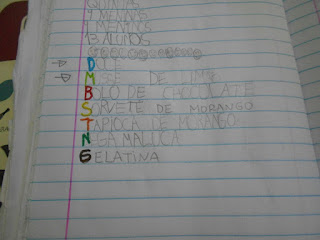 MENINAS
MENINOS
13 ALUNOS
DOCE
MUSSE DE LIMÃO
BOLO DE CHOCOLATE
SORVETE DE MORANGO
TAPIOCA DE MORANGO
NEGA MALUCA
GELATINA